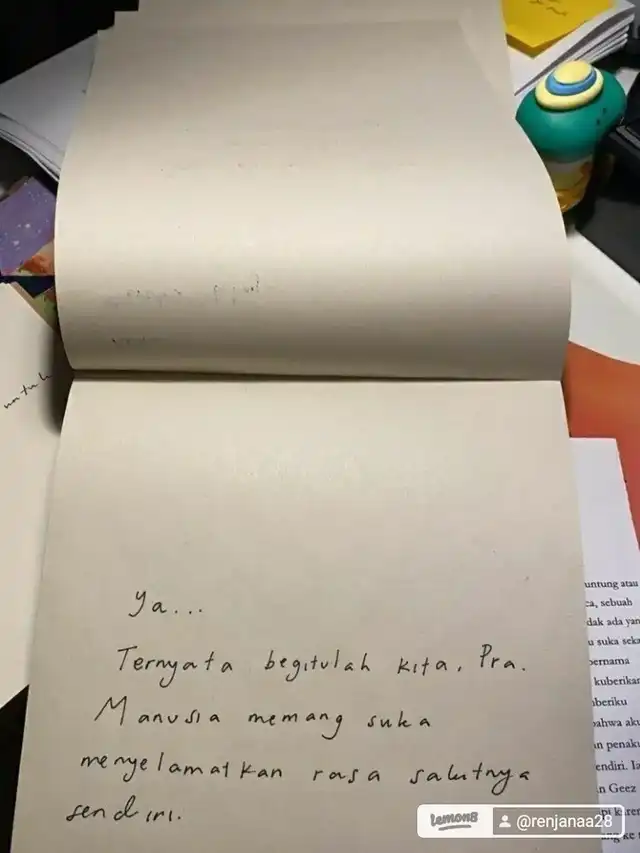 untuk
Ya...
Ternyata begitulah kita, Pra.
Manusia memang suka
menyelamatkan rasa sakitnya
sendiri.
untung atau
ca, sebuah
dak ada yan
u suka seka
bernama
kuberikan
beriku
bahwa aku
n penaku
endiri. Ia
n Geez
api karen
ang ke
lemon8 @renjanaa28